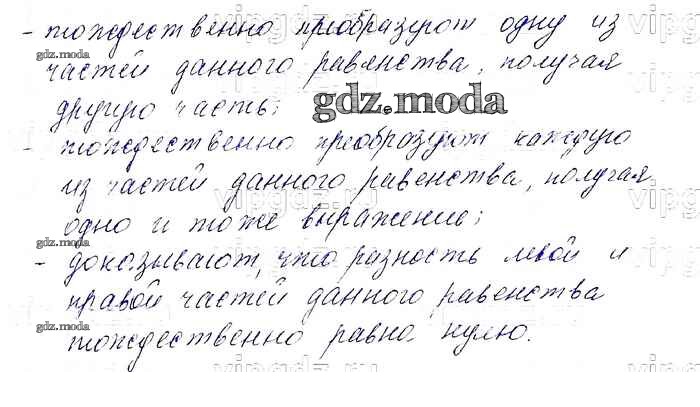 - тождественно преобразуют одну из
частей данного равенства, получая
другую часть;
- тождественно преобразуют каждую
из частей данного равенства, получая
одно и тоже выражение;
- доказывают, что разность левой и
правой частей данного равенства
тождественно равна нулю.
gdz.moda
gdz.moda
gdz.moda
gdz.moda
gdz.moda
vipgdz.ru